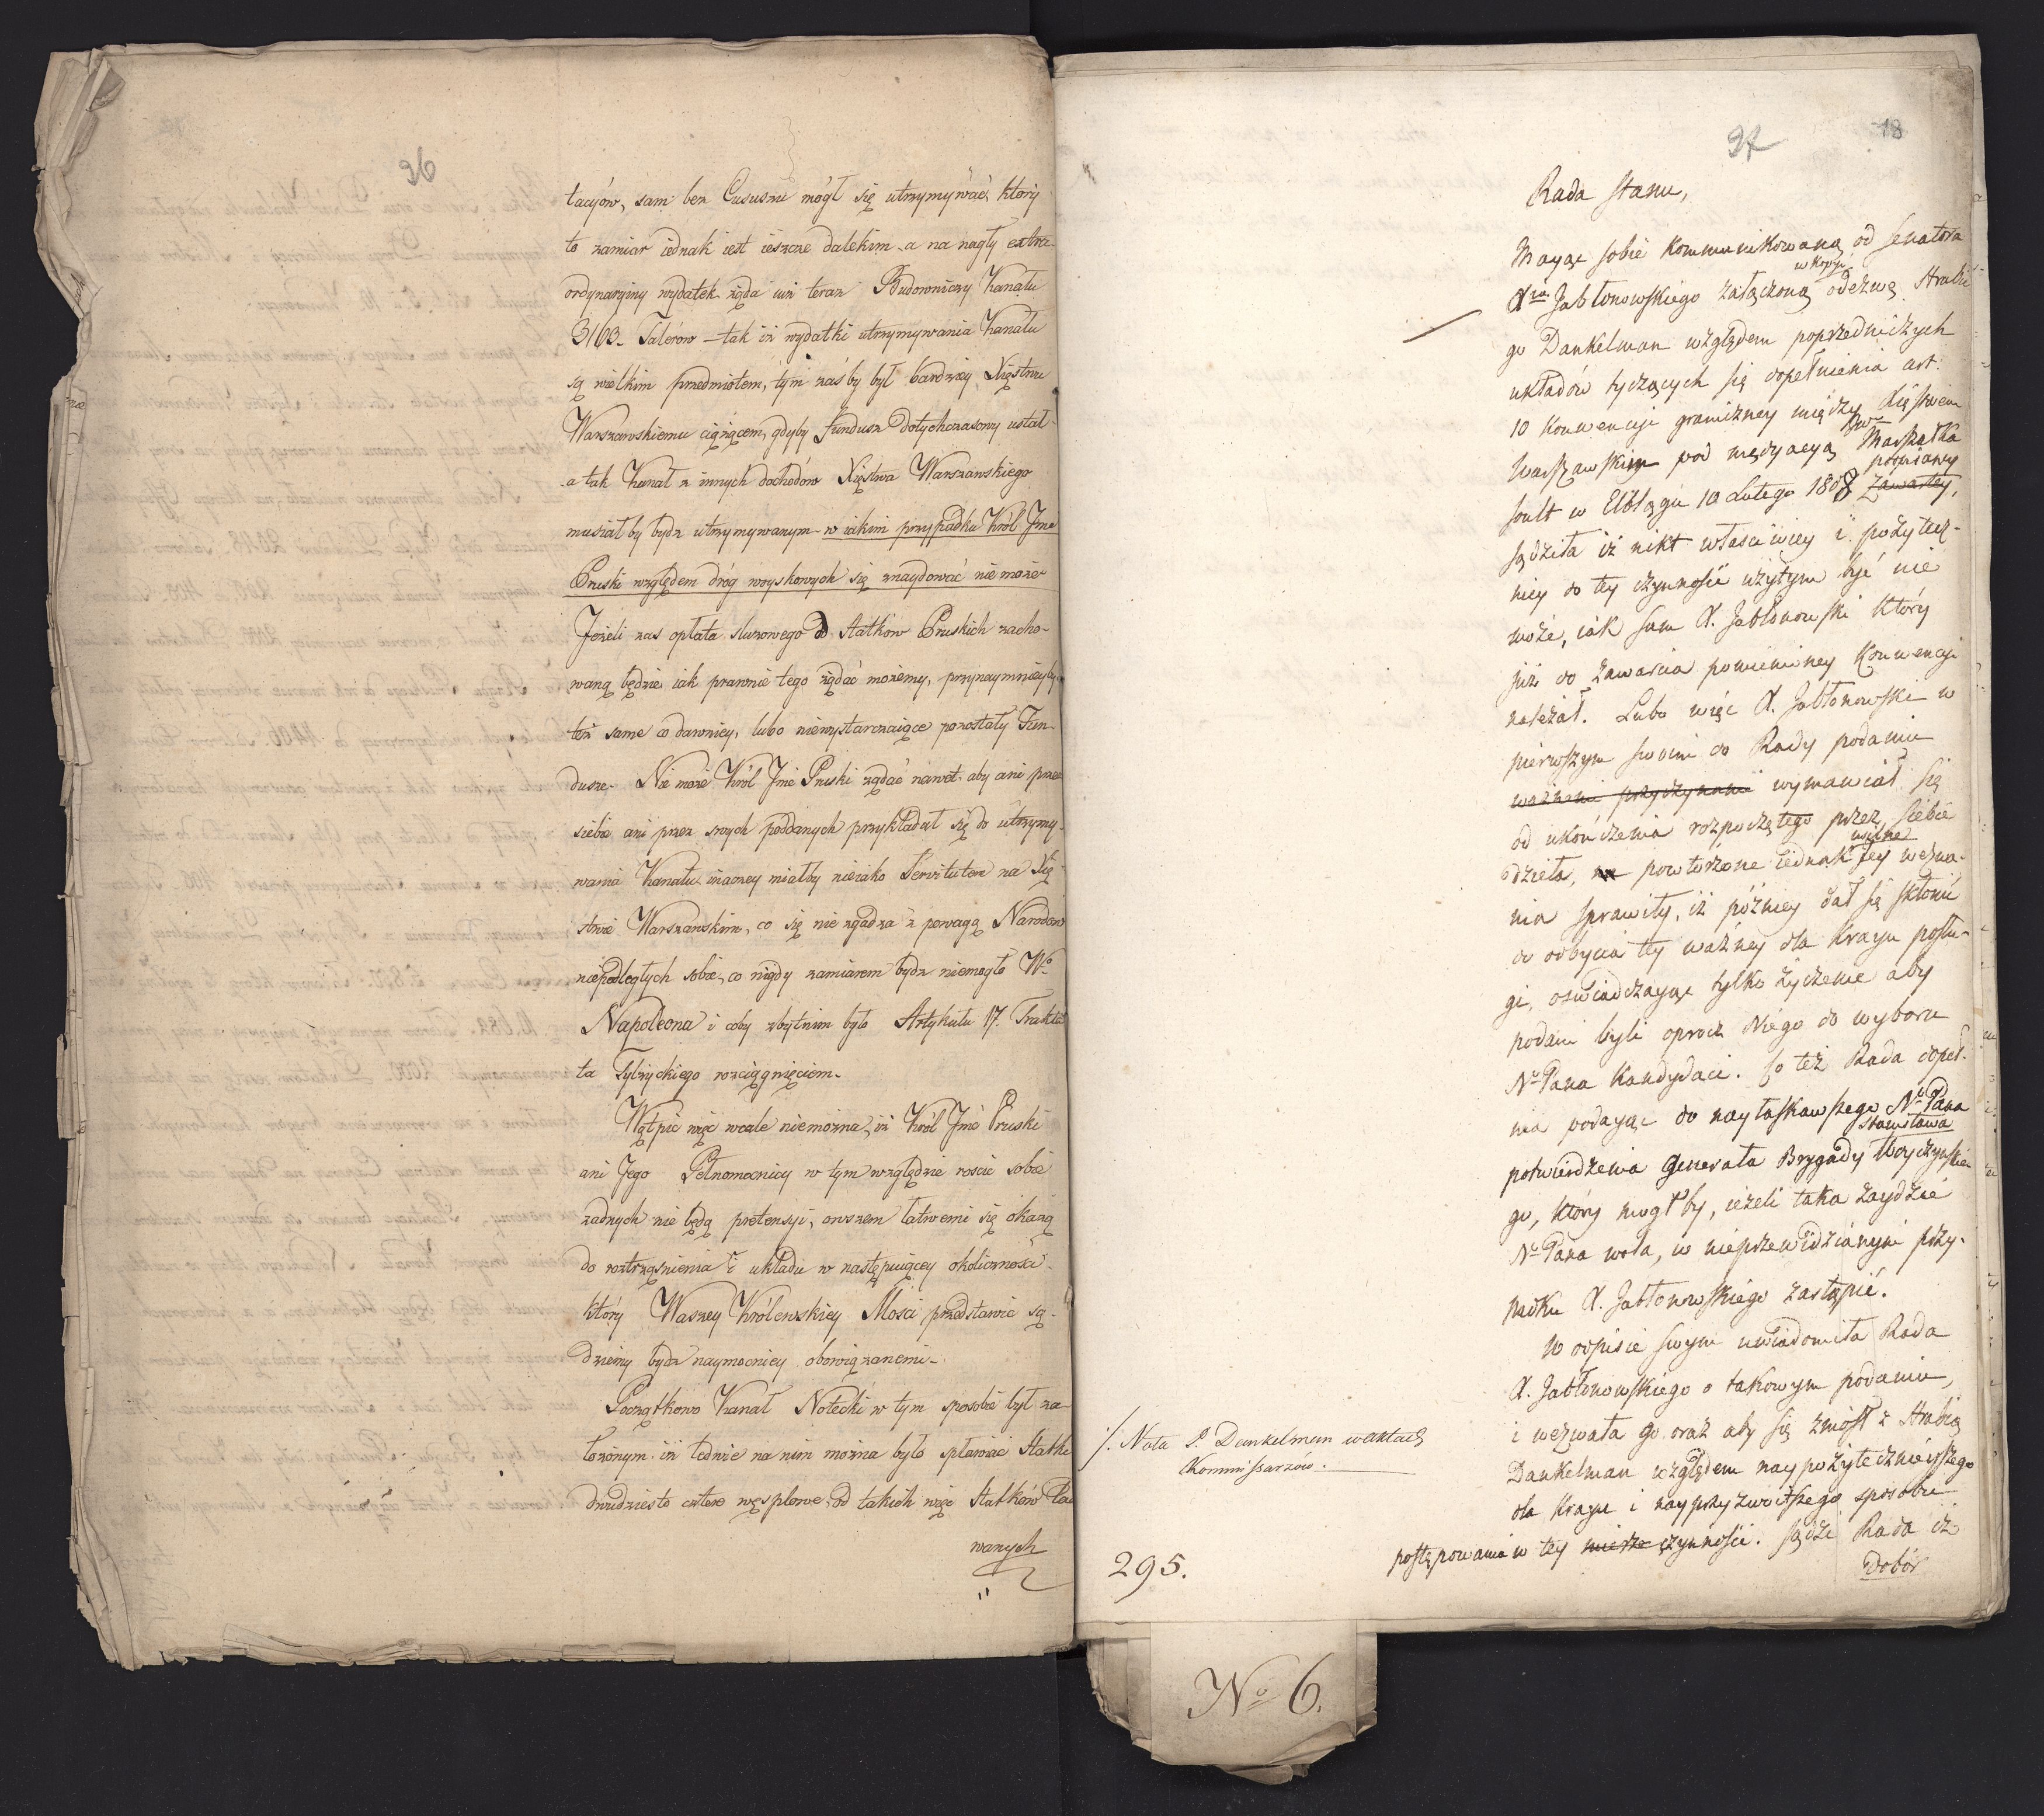 96
tacyów, sam bez Cususzu mógł się utrzymywać, który
to zamiar iednak iest ieszcze dalekim a na nagły extra-
ordynaryiny wydatek żąda iuż teraz Budowniczy Kanału
3163 Talerów – tak iż wydatki utrzymywania Kanału
są wielkim przedmiotem, tym zaś by był bardziey Xięstwu
Warszawskiemu ciążącem, gdyby fundusz dotychczasowy ustał
a tak Kanał z innych dochodów Xięstwa Warszawskiego
musiałby bydz utrzymywanym w iakim przypadku Król Jme
Pruski względem dróg woyskowych się znaydować nie może
Jeżeli zas opłata sluzowego od statków Pruskich zacho-
waną będzie iak prawnie tego żądać możemy, przynaymniey by
też same co dawniey, lubo niewystarczaiące pozostały Fun-
dusze. Nie może Król Jme Pruski żądać nawet aby ani przez
siebie ani przez swych poddanych przykładał się do utrzymy-
wania Kanału inaczey miałby nieiako Servitutem na Xię-
stwie Warszawskim, co się nie zgadza z powagą Narodów
niepodległych sobie, co nigdy zamiarem bydz niemogło Wo
Napoleona i coby zbytnim było Artykułu 17. Trakta-
ta Tylżyckiego rozciągnięciem.
Wątpić więc wcale niemożna, iż Król Jmć Pruski
ani Jego Pełnomocnicy w tym względzie roscić sobie
żadnych nie będą pretensyi, owszem łatwemi się okażą
do roztrząśnienia i układu w następuiącey okoliczności
który Waszey Królewskiey Mości przedstawić są-
dziemy bydz naymocniey obowiązanemi.
Początkowo Kanał Notecki w tym sposobie był za-
łożonym iż ledwie na nim można było spławiać Statki
dwudziesto cztero węsplowe, od takich więc Statków Ła
wanych
97
18
Rada Stanu,
Maiąc sobie kommunikowaną od Senatora
w kopii
Xcia Jabłonowskiego załączoną odezwę Hrabie
go Dankelman względem poprzedniczych
układów tyczących się dopełnienia art:
10 Konwencyi graniczney między Xięstwem
Warszawskim pod medyacyą Marszałka
pożnianey
Soult w Elblągu 10 Lutego 1808 zawartey,
sądziła iż nikt właściwiey i pożytecz-
niey do tey czynności użytym być nie
może, iak sam X. Jabłonowski który
iuż do zawarcia pomienioney Konwencyi
należał. Lubo więc X. Jabłonowski w
pierwszym swoim do Rady podaniu
ważnemi przyczynami wymawiał się
od ukończenia rozpoczętego przez siebie
usilne
dzieła, powtórzone iednak Jey wezwa-
nia sprawiły, iż późniey dał się skłonić
do odbycia tey ważney dla kraiu posłu-
gi, oswiadczaiąc tylko życzenie aby
podani byli oprocz Niego do wyboru
No Pana Kandydaci. Co też Rada dopeł-
nia podaiąc do nayłaskawszego No Pana
Stanisława
potwierdzenia Generała Brygady Woyczyńskie-
go, który mogłby, ieżeli taka zaydzie
No Pana wola, w nieprzewidzianym przy-
padku X. Jabłonowskiego zastąpić.
W odpisie swym uwiadomiła Rada
X. Jabłonowskiego o takowym podaniu,
i wezwała go oraz aby się zniósł z Hrabią
Dankelman względem naypożytecznieyszego
dla Kraiu i nayprzyzwoitszego sposobu
postępowania w tey mierze czynności. Sądzi Rada iż
dobór
/. Nota P. Dankelman w aktach
Kommissarzów.
295.
No 6.